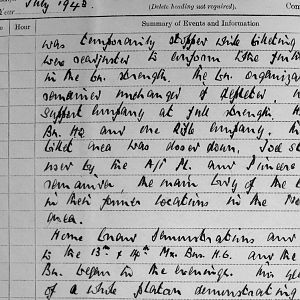 July 1943.
(Delete heading not required).
Year
Com
Hour
Summary of Events and Information
was temporarily stopped while
were readjusted to conform to the
in the Bn. strength. The Bn. organiza
remained unchanged
Support Company at full strength.
Bn. HQ and one Rifle Company.
billet area was closed down.
used by the A/T Pl. and Pioneers
remained, the main body of the
in their former locations in the
area.
Home Guard demonstrations and
to the 13th & 14th Mx. Bns. H.G. and the
Bn. began in the evenings. This
of a whole platoon demonstrating